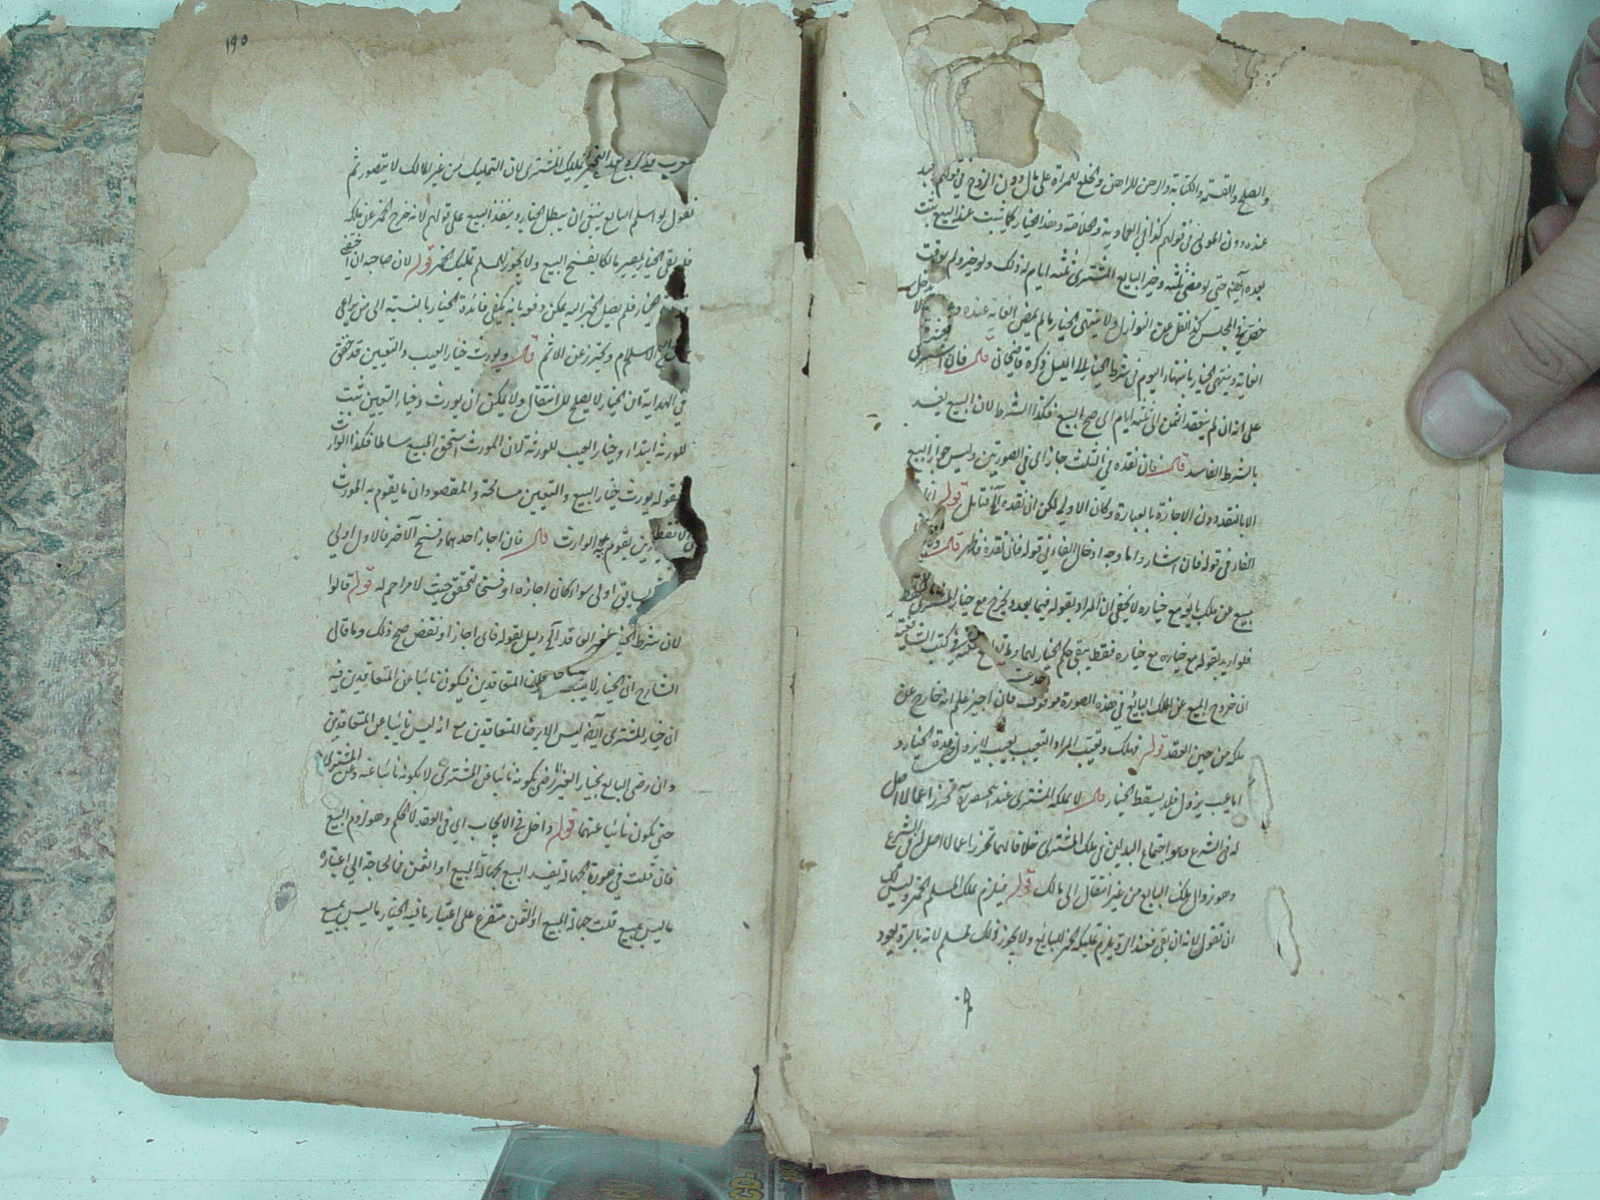 والصلح والقسمة والكتابة والرهن للراهن والخلع للمرأة على مال دون الزوج في قولهم
عنده دون المولى في قولهم كذا في العمادية والخلاصة وهذا الخيار كما يثبت عند البيع يثبت
بعده حتى لو مضى ثلثة وخير البايع المشترى ثلثة ايام له ذلك ولو خير ولم يوقت
في المجلس كذا نقل عن النوازل ولا ينتهى الخيار ما لم يمض الغاية عنده
الغاية وينتهى الخيار بانتهاء اليوم في شرط الخيار الى الليل ذكره قاضيخان قال فان اشترى
على انه ان لم ينقد الثمن الى ثلثة ايام اى صح البيع فكذا الشرط لان البيع يفسد
بالشرط الفاسد قال فان نقده في الثلث جاز اى في الصورتين وليس جواز البيع
الا بالنقد دون الاجازة بالعبارة وكان الاولى لكن ان نقده فتأمل قوله
الفاء في قوله فان اشار واما وجه ادخال الفاء في قوله فان نقده فظهر قال
مبيع عن ملك بايعه مع خياره لا يخفى ان المراد بقوله فيما بعد ويخرج مع خيار المشترى فقط
فلو اريد بقوله مع خياره مع خياره فقط يبقى حكم الخيار لهما في كتب الشافعية
ان خروج المبيع عن ملك البائع في هذه الصورة موقوف فان اجيز علم انه خارج عن
ملكه من حين العقد قوله فهلك وتعيب المراد التعيب بعيب لا يزول في مدة الخيار و
اما عيب يزول فلا يسقط الخيار قال لا يملكه المشترى عند ابيحنيفة تحرزا عما لا اصل
له في الشرع وهو اجتماع البدلين في ملك المشترى خلافا لهما تحرزا عما لا اصل له في الشرع
وهو زوال ملك البايع من غير انتقال الى مالك قوله فيلزم تملك المسلم الخمر وليس لك
ان تقول لانه ان بقى فعند الرد يلزم تمليكه الخمر للبائع ولا يجوز ذلك لمسلم لانه بالرد يعود
١٩٥
بعد التخير تمليك المشترى لان التمليك من غير المالك لا يتصور ثم
نقول لو اسلم البايع ينبغى ان يبطل الخيار وينفذ البيع على قولهم لانه خرج الخمر عن ملكه
فلو بقى الخيار يصير مالكا بفسخ البيع ولا يجوز للمسلم تملك الخمر قوله لان صاحبه ان اختفى
الخيار فلم يصل الخبر اليه يمكن دفعه بانه يكفى فائدة الخيار بالنسبة الى من يراعى
الاسلام ويحترز عن الاثم قال ويورث خيار العيب والتعيين قد حقق
في الهداية ان الخيار لا يصلح للانتقال ولا يمكن ان يورث وخيار التعيين يثبت
للورثة ابتداء وخيار العيب للورثة لان المورث استحق المبيع سالما فكذا الوارث
فقوله يورث خيار البيع والتعيين مسامحة والمقصود ان ما يقوم به المورث
يقوم به الوارث قال فان اجاز احدهما وفسخ الآخر فالاول اولى
اولى سواء كان اجازة او فسخا لتحقق حيث لا مزاحم له قوله قالوا
لان شرط الخيار لغير العاقد دليل بقوله فاى اجاز او نقض صح ذلك وما قال
الشارح ان الخيار لا يثبت المتعاقدين فيكون نائبا عن المتعاقدين فيه
ان خيار المشترى ايضا ليس الا برضا المتعاقدين مع انه ليس نائبا عن المتعاقدين
وان رضى البايع بخيار الغير رضى بكونه نائبا عن المشترى لا بكونه نائبا عنه وعن المشترى
حتى يكون نائبا عنهما قوله داخل في الايجاب اى في العقد لا الحكم وهو لزوم البيع
فان قلت في صورة الجهالة يفسد البيع بجهالة المبيع او الثمن فما الحاجة الى اعتبار
ما ليس بمبيع قلت جهالة المبيع او الثمن متفرع على اعتبار ما فيه الخيار ما ليس بمبيع